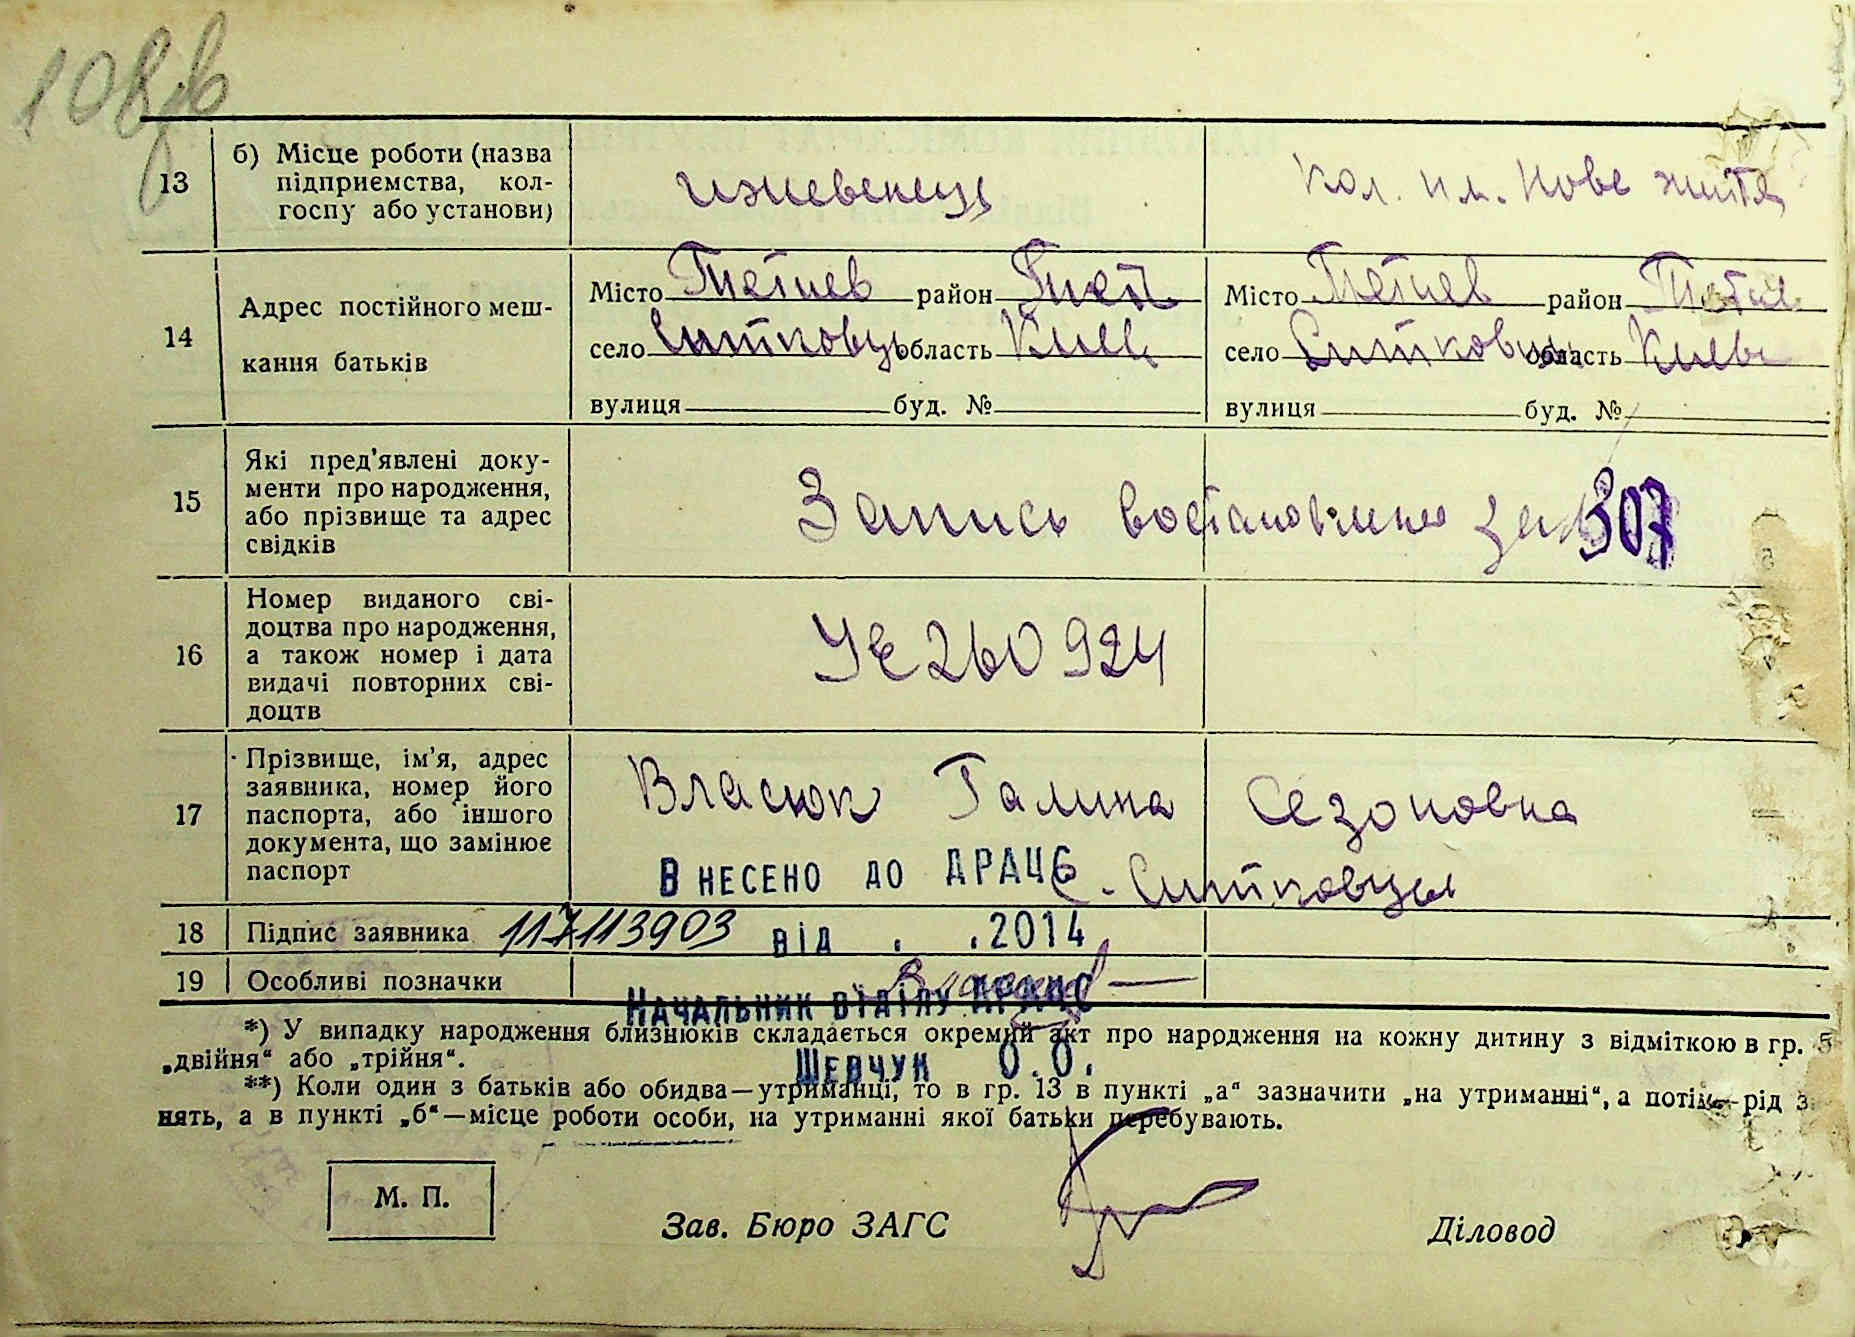 108 зв
13 б) Місце роботи (назва підприємства, кол- госпу або установи) ижевенець кол. им. Нове життя
14 Адрес постійного меш- кання батьків
Місто Тетиев район Тет Місто Тетиев район Тетие
село Ситковцы область Киев село Ситковцы область Киевс
вулиця буд. № вулиця буд. №
15 Які пред'явлені доку- менти про народження, або прізвище та адрес свідків Запись востановлена за 307
16 Номер виданого сві- доцтва про народження, а також номер і дата видачі повторних сві- доцтв УЄ 260924
17 Прізвище, ім'я, адрес заявника, номер його паспорта, або іншого документа, що замінює паспорт Власюк Галина Сезоновна
с. Ситковцы
Внесено до ДРАЦС
18 Підпис заявника 117113903 від . .2014
19 Особливі позначки
Начальник відділу ДРАЦС
*) У випадку народження близнюків складається окремий акт про народження на кожну дитину з відміткою в гр. 5
„двійня“ або „трійня“.
Шевчук О.О.
**) Коли один з батьків або обидва—утриманці, то в гр. 13 в пункті „а“ зазначити „на утриманні“, а потім—рід з
нять, а в пункті „б“—місце роботи особи, на утриманні якої батьки перебувають.
М. П.
Зав. Бюро ЗАГС Діловод